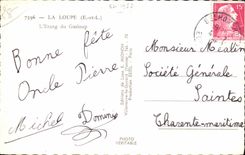 7596 - LA LOUPE (E.-et-L.)
L'Etang du Gasloup
Bonne fête
Oncle Pierre
Michel Dominique
PHOTO
VERITABLE
Monsieur Méalin
Société Générale
Saintes
Charente-maritime